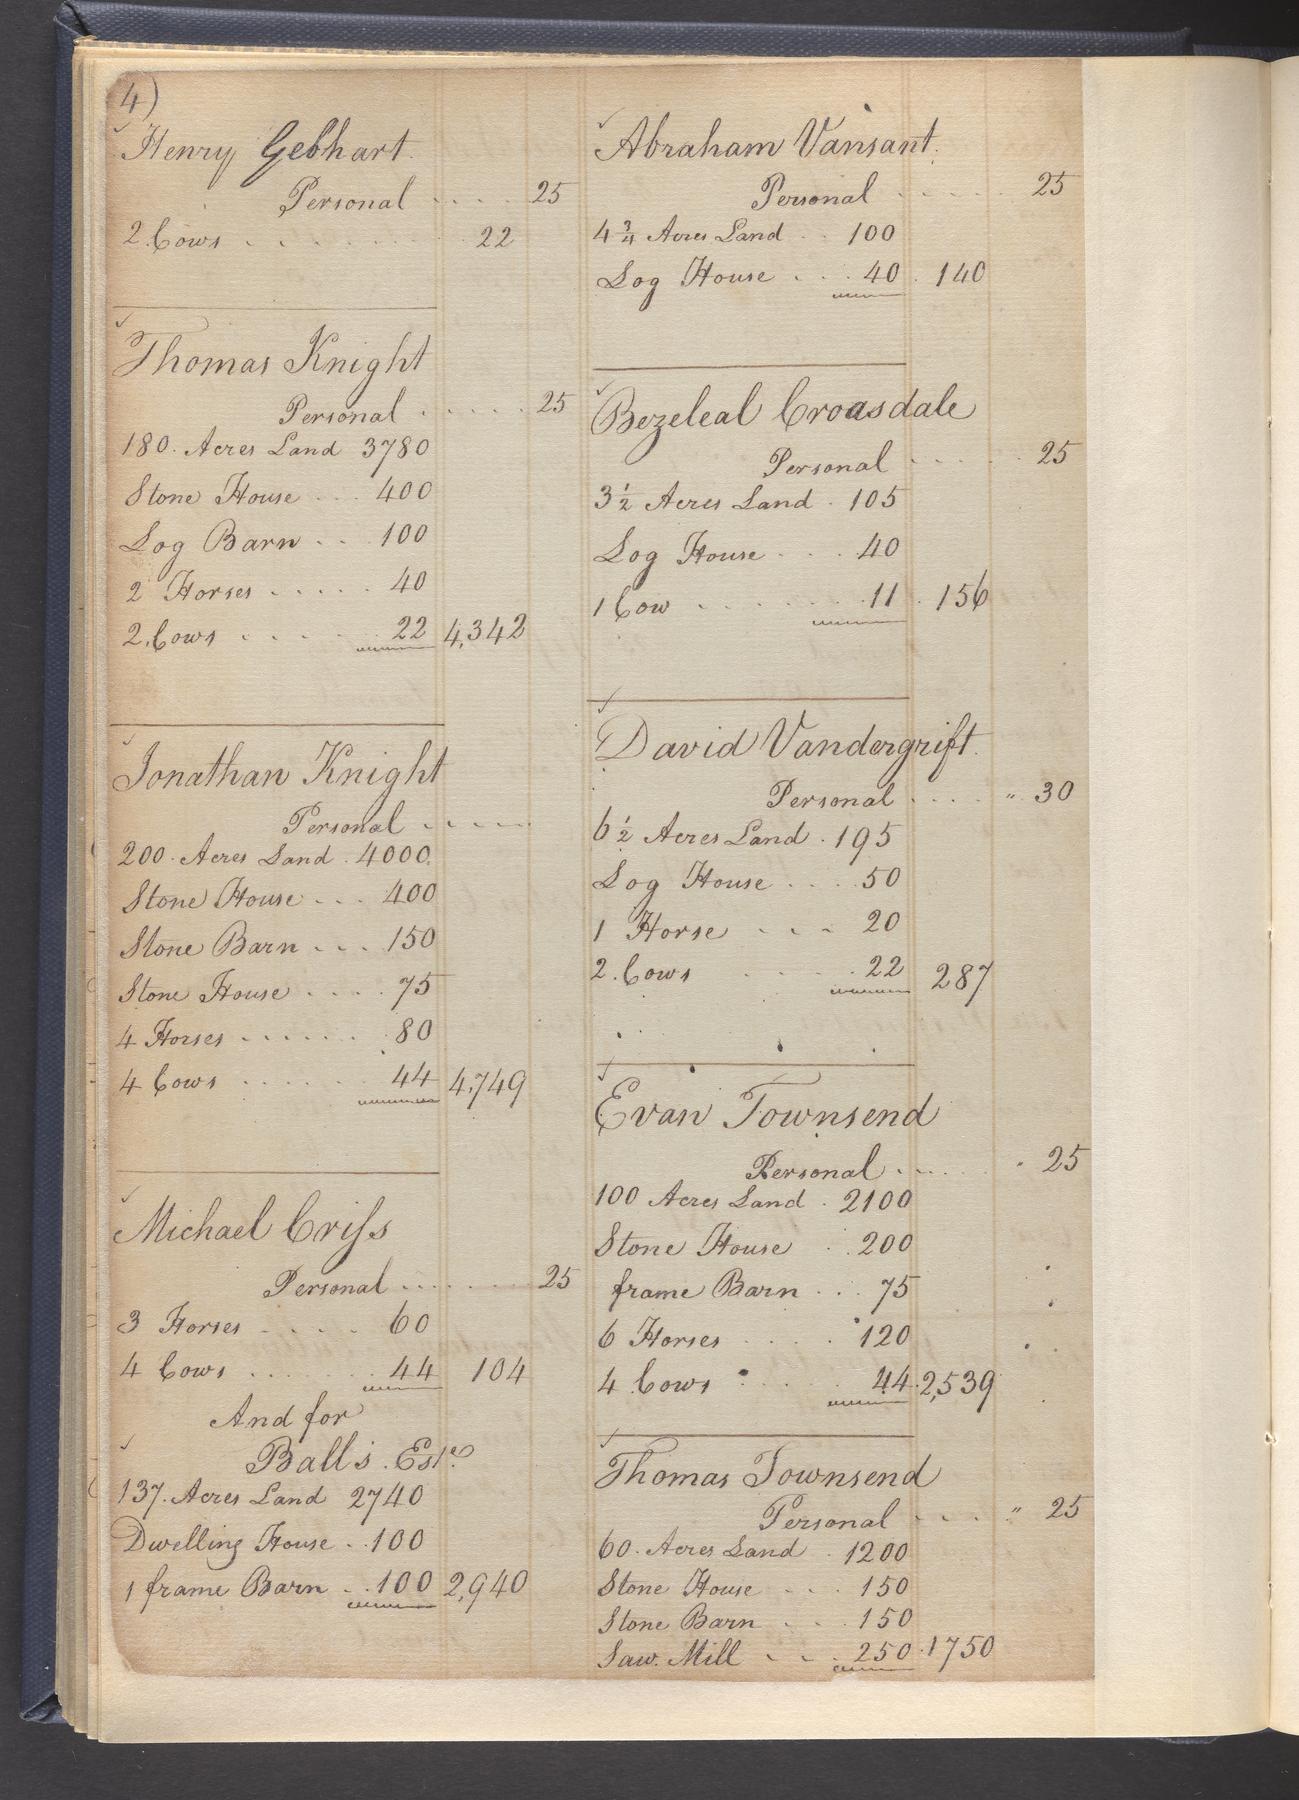 4)
Henry Gebhart.
Personal .... 25
2 Cows .......... 22
Thomas Knight
Personal ..... 25
180. Acres Land 3780
Stone House ... 400
Log Barn ... 100
2 Horses ..... 40
2. Cows ..... 22 4,342
Jonathan Knight
Personal .....
200. Acres Land . 4000.
Stone House ... 400
Stone Barn ... 150
Stone House .... 75
4 Horses ...... 80
4 Cows ...... 44 4,749
Michael Criſs
Personal ...... 25
3 Horses .... 60
4 Cows ...... 44 104
And for
Ball's Este.
137. Acres Land 2740
Dwelling House .. 100
1 frame Barn ... 100 2,940
Abraham Vansant.
Personal ..... 25
4 3/4 Acres Land .. 100
Log House ... 40 . 140
Bezeleal Croasdale
Personal ..... 25
3 1/2 Acres Land . 105
Log House .... 40
1 Cow ....... 11 . 156
David Vandergrift.
Personal .... " 30
6 1/2 Acres Land . 195
Log House .... 50
1 Horse .... 20
2. Cows ..... 22 287
Evan Townsend
Personal ..... 25
100 Acres Land . 2100
Stone House . 200
frame Barn ... 75
6 Horses .... 120
4 Cows ..... 44 . 2,539
Thomas Townsend
Personal .... " 25
60. Acres Land . 1200
Stone House ... 150
Stone Barn ... 150
Saw. Mill ... 250 . 1750